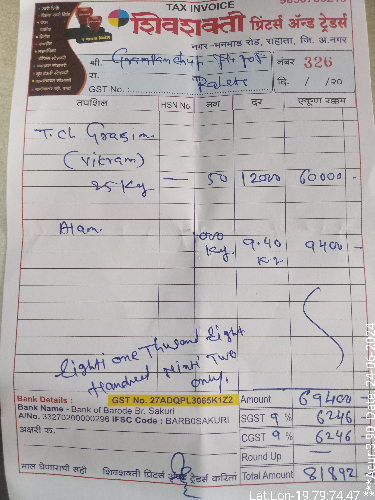 TAX INVOICE
शिवशक्ती प्रिंटर्स अ‍ॅन्ड ट्रेडर्स
नगर-मनमाड रोड, राहाता, जि. अ.नगर
श्री. Grampanchyt
नंबर 326
रा.
दि. / /20
GST No. :
तपशिल HSN No नग दर एकूण रक्कम
T.CL Grasim
(Vikram)
25 Kg — 50 1200 60000-
Alam 1000 Kg 9.40 9400-
Eighti one Thusand Eight
Handred Ninti Two
only.
Bank Details : GST No. 27ADQPL3065K1Z2
Bank Name - Bank of Barode Br. Sakuri
A/No. 33270200000296 IFSC Code : BARB0SAKURI
अक्षरी रु.
Amount 69400-
SGST 9 % 6246-
CGST 9 % 6246-
Round Up
Total Amount 81892
माल घेणाराची सही शिवशक्ती प्रिंटर्स ट्रेडर्स करिता
Lat,Lon-19.79,74.47
Date-24-06-2024